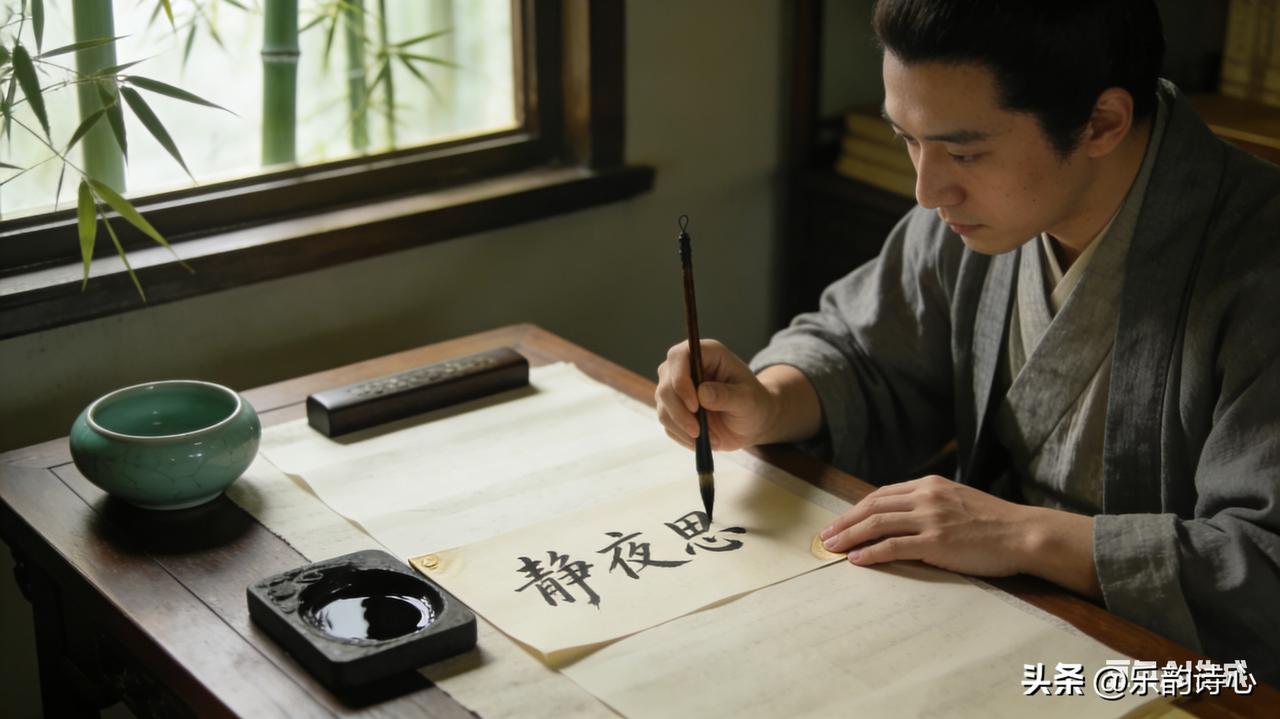 静夜思
头条 @乐韵诗心